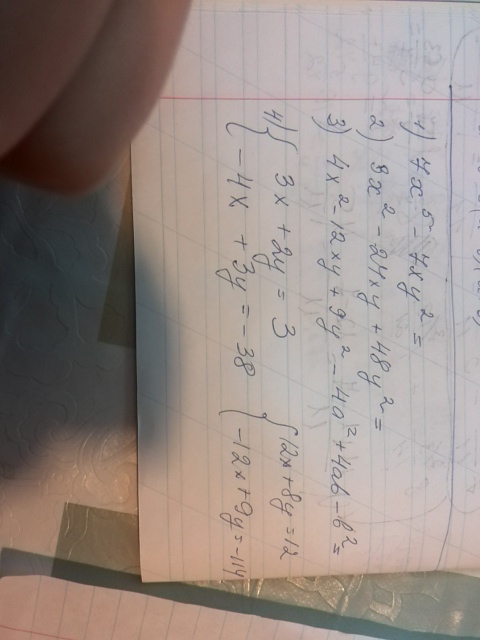 1) 7x⁵ - 7xy² =
2) 3x² - 24xy + 48y² =
3) 4x² - 12xy + 9y² - 4a² + 4ab - b² =
4) { 3x + 2y = 3 { 12x + 8y = 12
{ -4x + 3y = -38 { -12x + 9y = -114